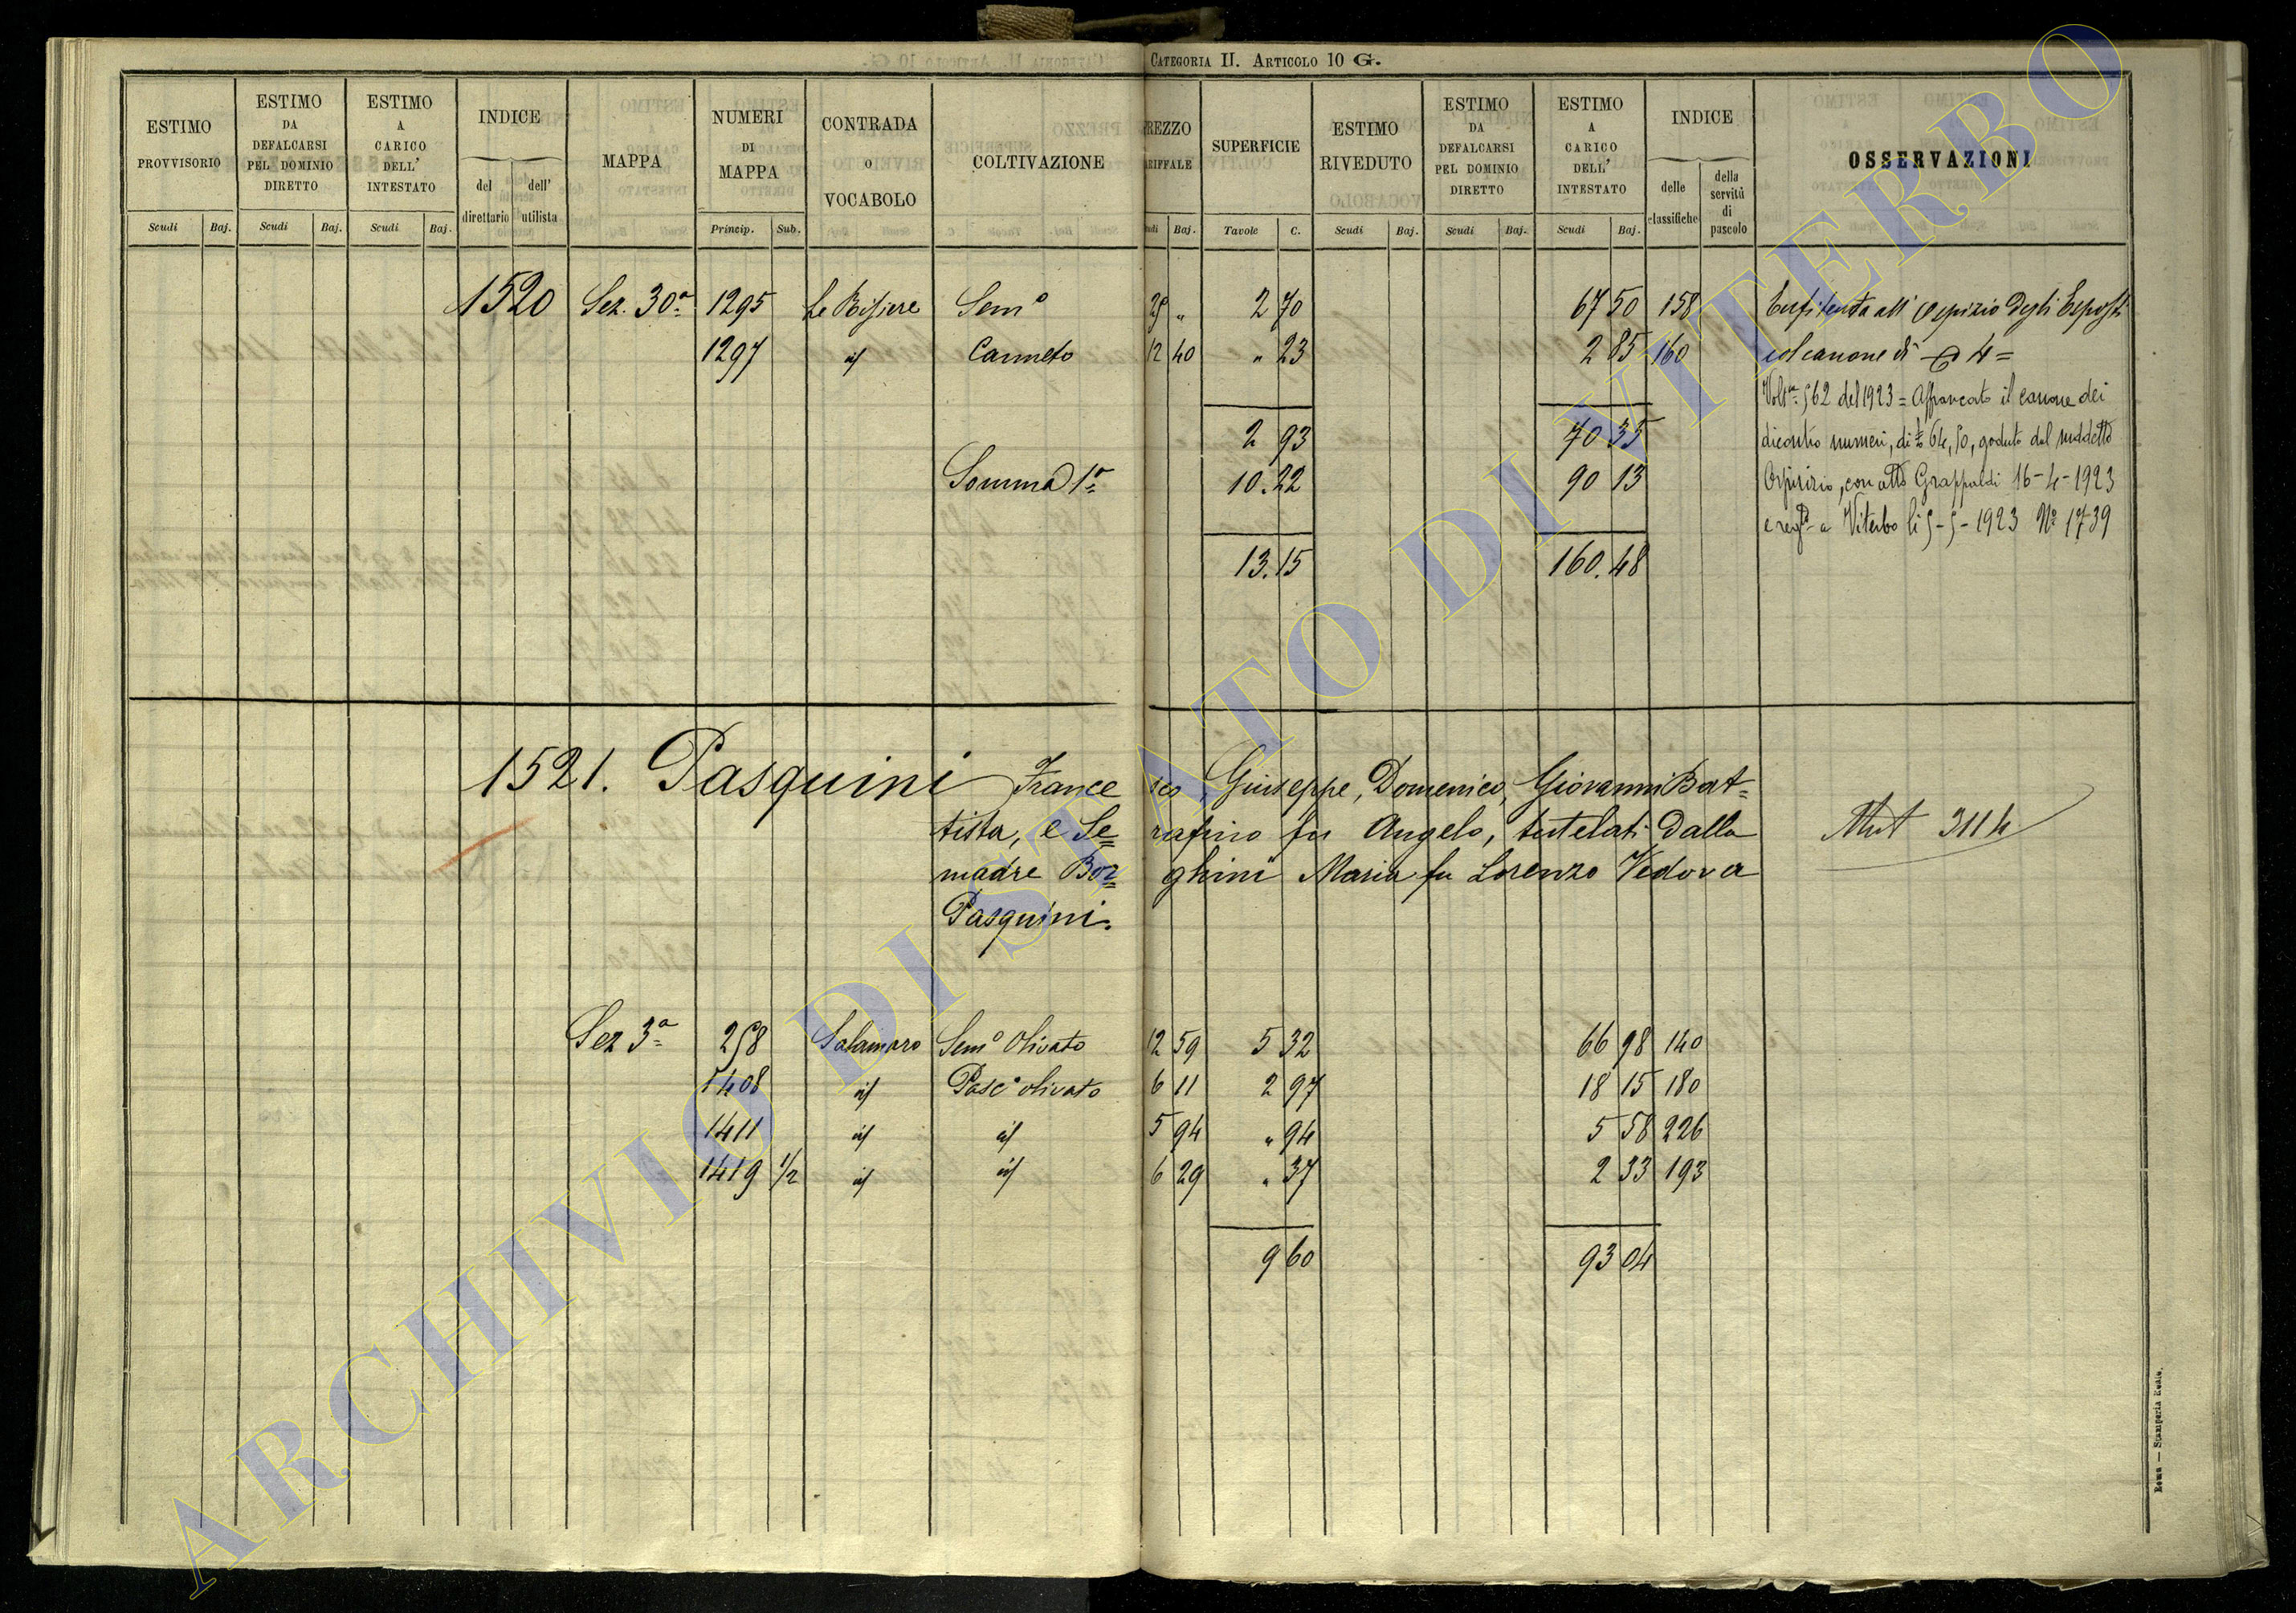 CATEGORIA II. ARTICOLO 10 G.
ESTIMO PROVVISORIO Scudi Baj.
ESTIMO DA DEFALCARSI PEL DOMINIO DIRETTO Scudi Baj.
ESTIMO A CARICO DELL' INTESTATO Scudi Baj.
INDICE del direttario dell' utilista
MAPPA
NUMERI DI MAPPA Princip. Sub.
CONTRADA O VOCABOLO
COLTIVAZIONE
REZZO RIFFALE udi Baj.
SUPERFICIE Tavole C.
ESTIMO RIVEDUTO Scudi Baj.
ESTIMO DA DEFALCARSI PEL DOMINIO DIRETTO Scudi Baj.
ESTIMO A CARICO DELL' INTESTATO Scudi Baj.
INDICE delle classifiche della servitù di pascolo
OSSERVAZIONI
1520 Sez. 30ª 1295 Le Semº 25 " 2 70 67 50 158 Enfiteuta all' Ospizio degli Esposti
1297 id Canneto 12 40 " 23 2 85 160 col canone di 4=
562 del 1923 = Affrancato il canone dei
2 93 70 35 dicontro numeri, di £ 64,50, goduto dal suddetto
Somma 1ª 10.22 90 13 Ospizio, con atto Grappaldi 16-4-1923
e regto a Viterbo li 5-5-1923 Nº 1739
13.15 160.48
1521. Pasquini France sco, Giuseppe, Domenico, Giovanni Bat=
tista, e Se= rafino fu Angelo, tutelati dalla Mut 3114
madre Bor= ghini Maria fu Lorenzo Vedova
Pasquini.
Sez 3ª 258 Salamaro Semº Olivato 12 59 5 32 66 98 140
1408 id Pascº olivato 6 11 2 97 18 15 180
1411 id id 5 94 " 94 5 58 226
1419 1/2 id id 6 29 " 37 2 33 193
9 60 93 04
Roma — Stamperia Reale.
ARCHIVIO DI STATO DI VITERBO